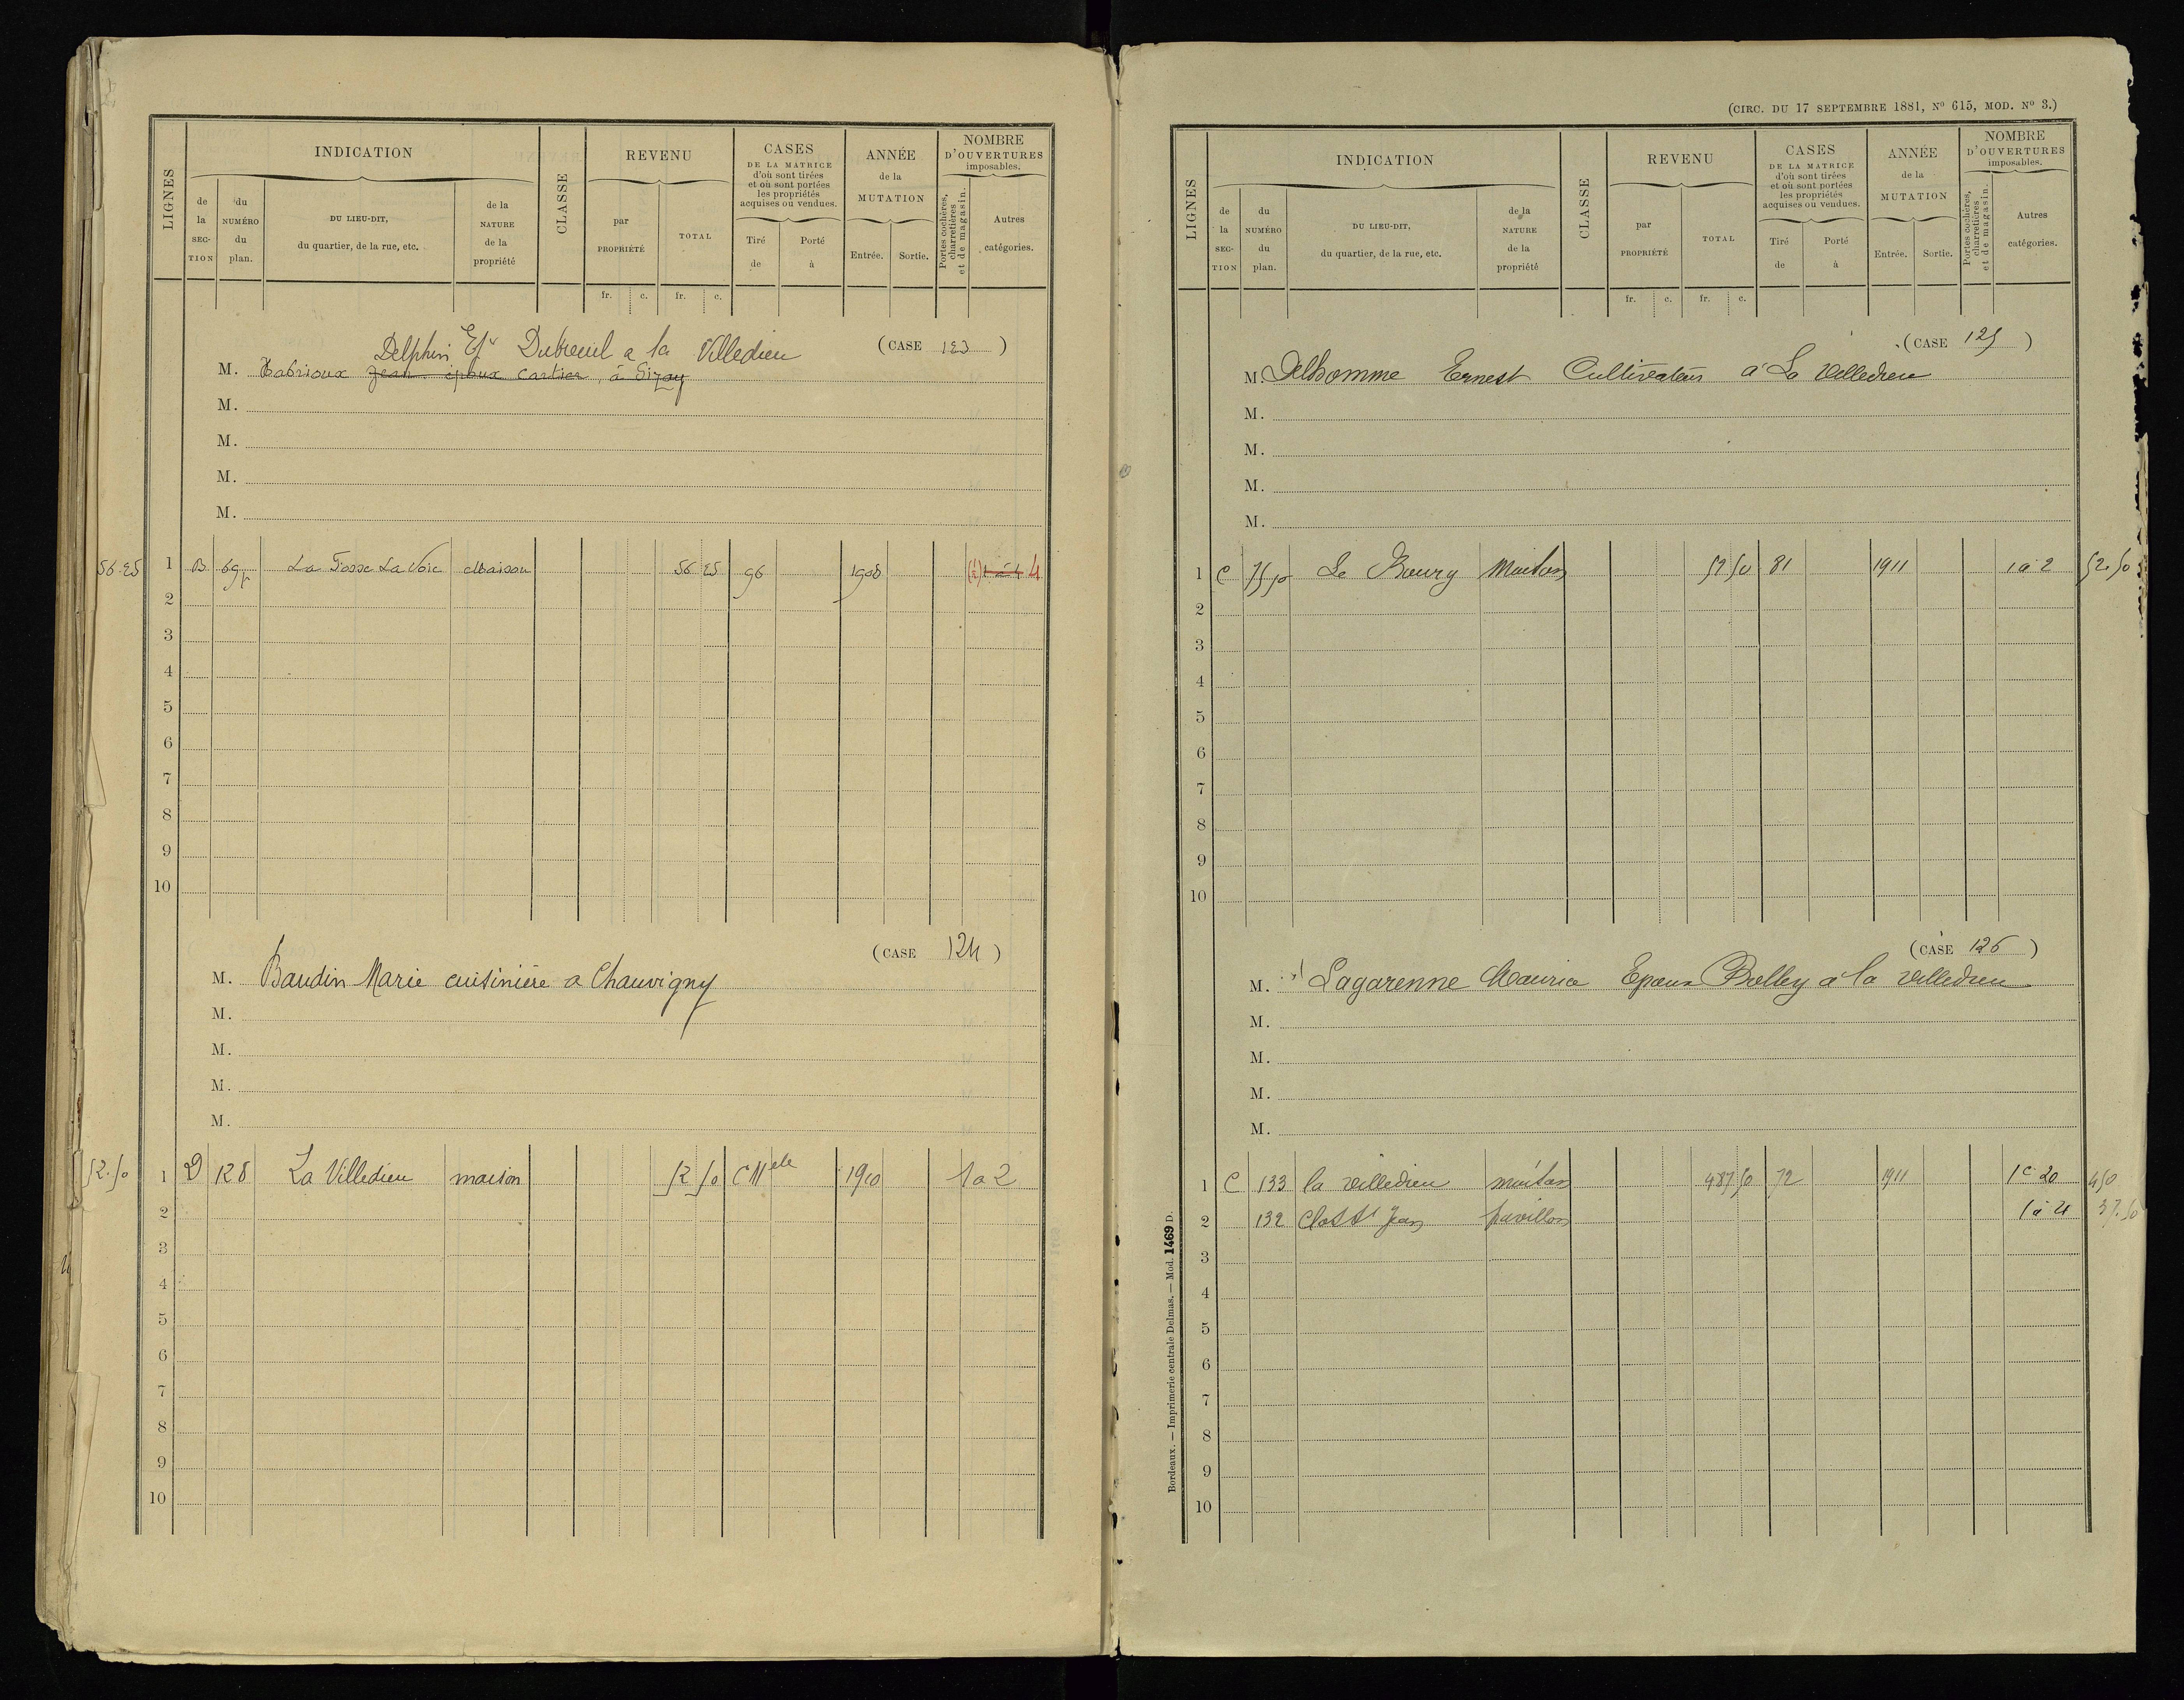 LIGNES
INDICATION
CLASSE
REVENU
CASES
DE LA MATRICE
d'où sont tirées
et où sont portées
les propriétés
acquises ou vendues.
ANNÉE
de la
MUTATION
NOMBRE
D'OUVERTURES
imposables.
de
la
SEC-
TION
du
NUMÉRO
du
plan.
DU LIEU-DIT,
du quartier, de la rue, etc.
de la
NATURE
de la
propriété
par
PROPRIÉTÉ
TOTAL
Tiré
de
Porté
à
Entrée.
Sortie.
Portes cochères,
charretières
et de magasin.
Autres
catégories.
fr. c. fr. c.
(CASE 123)
Delphin Ep Dubreuil a la Villedieu
M. Habrioux Jean époux Cartier, à Gizay
M.
M.
M.
M.
56.25 1 B 69p La Fosse La Voie Maison 56 25 96 1908 1 à 4 4
2
3
4
5
6
7
8
9
10
(CASE 124)
M. Baudin Marie cuisinière a Chauvigny
M.
M.
M.
M.
52.50 1 D 128 La Villedieu maison 52 50 C Nle 1910 1 a 2
2
3
4
5
6
7
8
9
10
(CIRC. DU 17 SEPTEMBRE 1881, Nº 615, MOD. Nº 3.)
LIGNES
INDICATION
CLASSE
REVENU
CASES
DE LA MATRICE
d'où sont tirées
et où sont portées
les propriétés
acquises ou vendues.
ANNÉE
de la
MUTATION
NOMBRE
D'OUVERTURES
imposables.
de
la
SEC-
TION
du
NUMÉRO
du
plan.
DU LIEU-DIT,
du quartier, de la rue, etc.
de la
NATURE
de la
propriété
par
PROPRIÉTÉ
TOTAL
Tiré
de
Porté
à
Entrée.
Sortie.
Portes cochères,
charretières
et de magasin.
Autres
catégories.
fr. c. fr. c.
(CASE 125)
M. Delhomme Ernest Cultivateur à La Villedieu
M.
M.
M.
M.
1 C 75p Le Bourg Maison 52 50 81 1911 1 à 2 52.50
2
3
4
5
6
7
8
9
10
(CASE 126)
M. Lagarenne Maurice Epoux à la Villedieu
M.
M.
M.
M.
1 C 133 la Villedieu maison 487 50 72 1911 1c 20 450
2 132 Clos St Jean pavillon 1 à 4 37.50
3
4
5
6
7
8
9
10
Bordeaux. — Imprimerie centrale Delmas. — Mod. 1469 D.